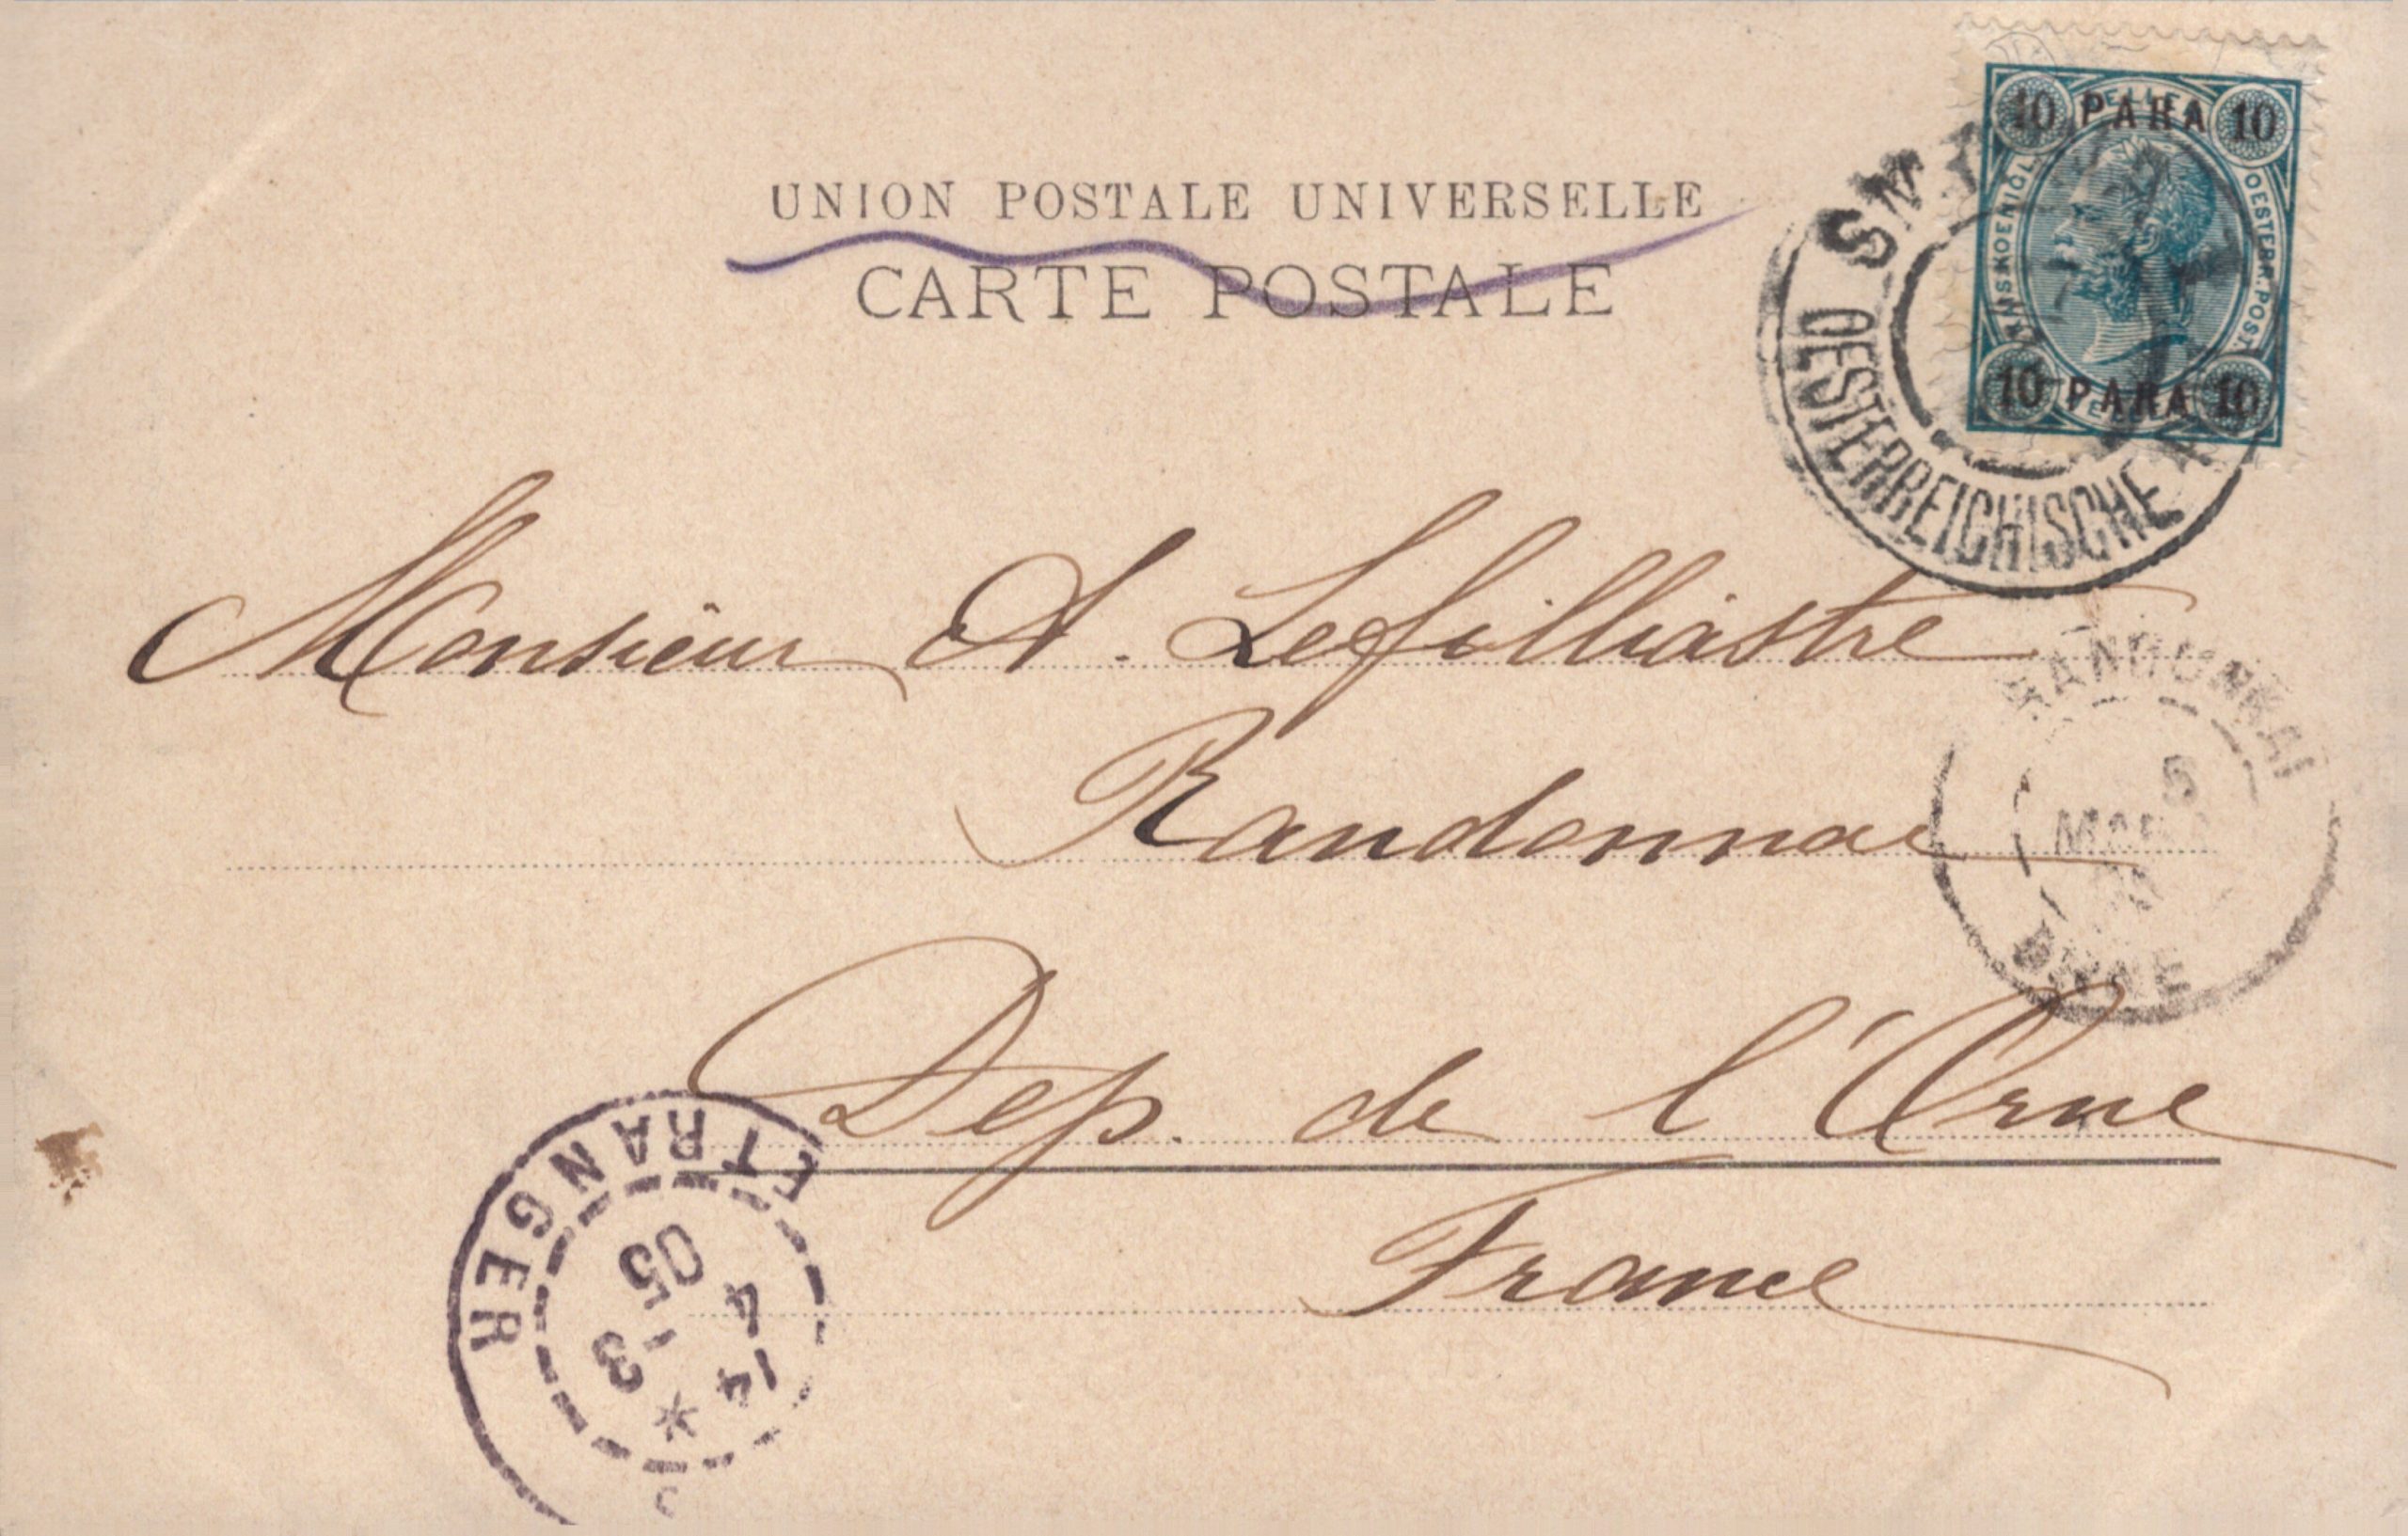 10 PARA 10
KAIS. KOENIGL. OESTERR. POST
10 PARA 10
UNION POSTALE UNIVERSELLE
CARTE POSTALE
OESTERREICHISCHE
Monsieur A. Lefilliastre
Randonnai
Dep. de l'Orne
France
RANDONNAI
5
MARS
05
ORNE
ETRANGER
14
4 -3
05